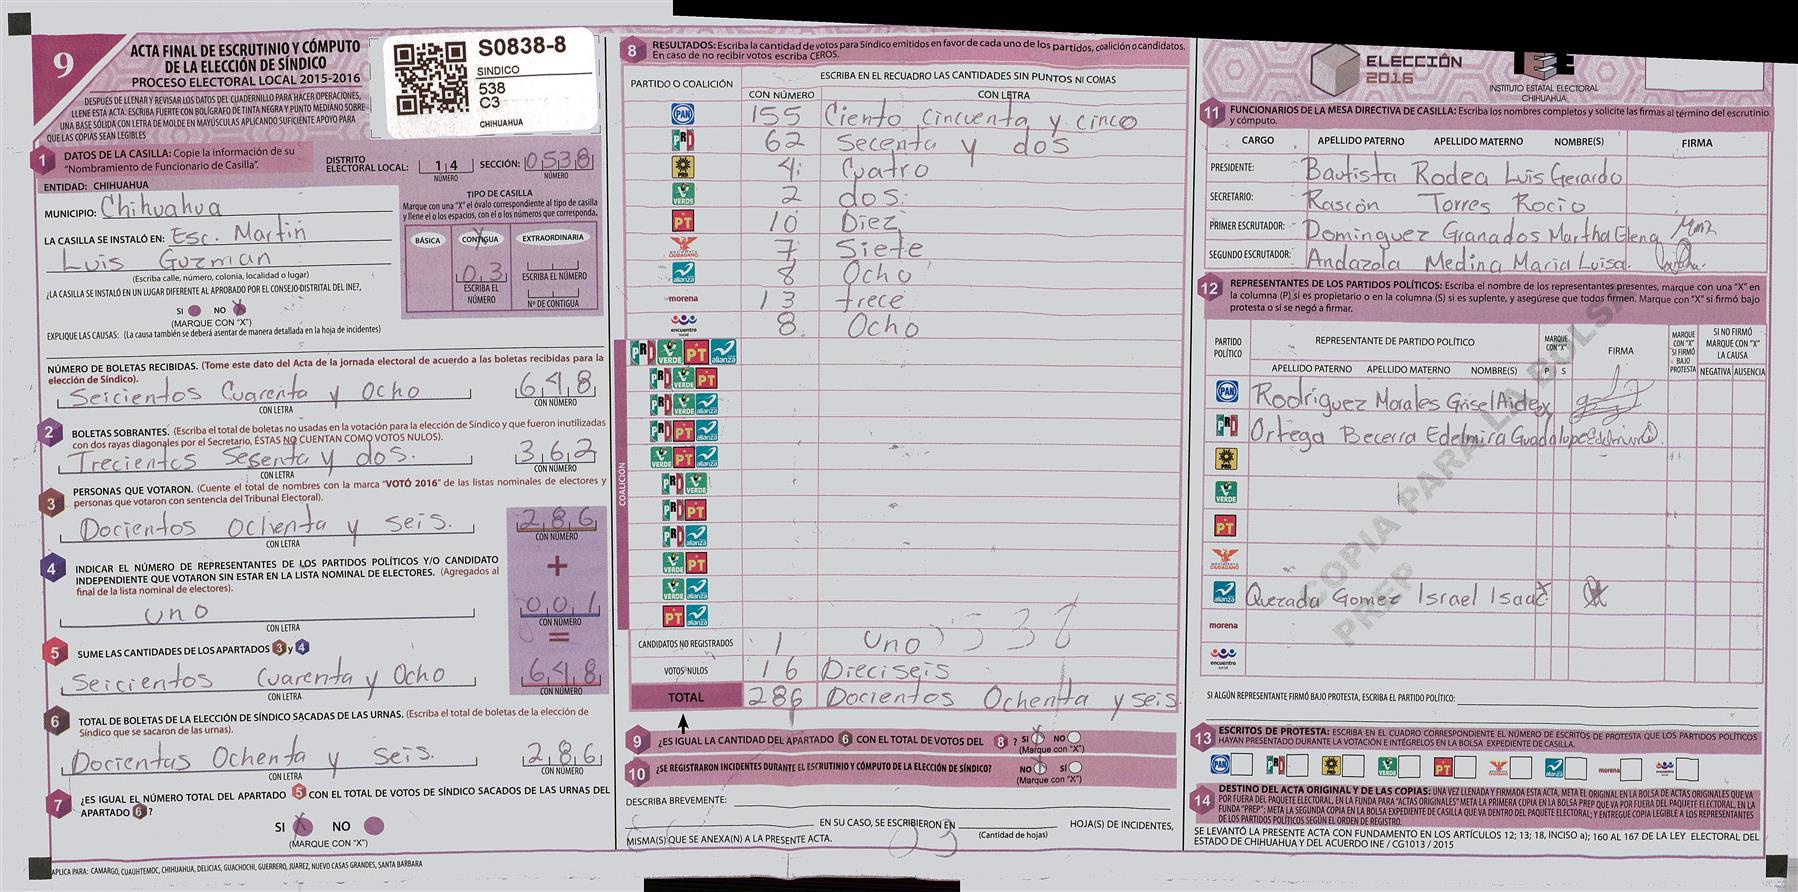 9
ACTA FINAL DE ESCRUTINIO Y CÓMPUTO
DE LA ELECCIÓN DE SÍNDICO
PROCESO ELECTORAL LOCAL 2015-2016
DESPUÉS DE LLENAR Y REVISAR LOS DATOS DEL CUADERNILLO PARA HACER OPERACIONES,
LLENE ESTA ACTA. ESCRIBA FUERTE CON BOLÍGRAFO DE TINTA NEGRA Y PUNTO MEDIANO SOBRE
UNA BASE SÓLIDA CON LETRA DE MOLDE EN MAYÚSCULAS APLICANDO SUFICIENTE APOYO PARA
QUE LAS COPIAS SEAN LEGIBLES
S0838-8
SINDICO
538
C3
CHIHUAHUA
1 DATOS DE LA CASILLA: Copie la información de su
"Nombramiento de Funcionario de Casilla".
DISTRITO
ELECTORAL LOCAL: 14 SECCIÓN: 0538
NÚMERO NÚMERO
ENTIDAD: CHIHUAHUA
MUNICIPIO: Chihuahua
LA CASILLA SE INSTALÓ EN: Esc. Martin
Luis Guzman
(Escriba calle, número, colonia, localidad o lugar)
¿LA CASILLA SE INSTALÓ EN UN LUGAR DIFERENTE AL APROBADO POR EL CONSEJO DISTRITAL DEL INE?,
SI NO X
(MARQUE CON "X")
EXPLIQUE LAS CAUSAS: (La causa también se deberá asentar de manera detallada en la hoja de incidentes)
TIPO DE CASILLA
Marque con una "X" el óvalo correspondiente al tipo de casilla
y llene el o los espacios, con el o los números que corresponda.
BÁSICA CONTIGUA X EXTRAORDINARIA
03
ESCRIBA EL NÚMERO
ESCRIBA EL NÚMERO
Nº DE CONTIGUA
NÚMERO DE BOLETAS RECIBIDAS. (Tome este dato del Acta de la jornada electoral de acuerdo a las boletas recibidas para la
elección de Síndico).
Seicientos Cuarenta y Ocho 648
CON LETRA CON NÚMERO
2 BOLETAS SOBRANTES. (Escriba el total de boletas no usadas en la votación para la elección de Síndico y que fueron inutilizadas
con dos rayas diagonales por el Secretario, ÉSTAS NO CUENTAN COMO VOTOS NULOS).
Trecientos Sesenta y dos. 362
CON LETRA CON NÚMERO
3 PERSONAS QUE VOTARON. (Cuente el total de nombres con la marca "VOTÓ 2016" de las listas nominales de electores y
personas que votaron con sentencia del Tribunal Electoral).
Docientos Ochenta y seis. 286
CON LETRA CON NÚMERO
+
4 INDICAR EL NÚMERO DE REPRESENTANTES DE LOS PARTIDOS POLÍTICOS Y/O CANDIDATO
INDEPENDIENTE QUE VOTARON SIN ESTAR EN LA LISTA NOMINAL DE ELECTORES. (Agregados al
final de la lista nominal de electores).
uno 001
CON LETRA CON NÚMERO
=
5 SUME LAS CANTIDADES DE LOS APARTADOS 3 y 4
Seicientos Cuarenta y Ocho 648
CON LETRA CON NÚMERO
6 TOTAL DE BOLETAS DE LA ELECCIÓN DE SÍNDICO SACADAS DE LAS URNAS. (Escriba el total de boletas de la elección de
Síndico que se sacaron de las urnas).
Docientas Ochenta y Seis. 286
CON LETRA CON NÚMERO
7 ¿ES IGUAL EL NÚMERO TOTAL DEL APARTADO 5 CON EL TOTAL DE VOTOS DE SÍNDICO SACADOS DE LAS URNAS DEL
APARTADO 6?
SI X NO
(MARQUE CON "X")
APLICA PARA: CAMARGO, CUAUHTEMOC, CHIHUAHUA, DELICIAS, GUACHOCHI, GUERRERO, JUAREZ, NUEVO CASAS GRANDES, SANTA BARBARA
8 RESULTADOS: Escriba la cantidad de votos para Síndico emitidos en favor de cada uno de los partidos, coalición o candidatos.
En caso de no recibir votos escriba CEROS.
PARTIDO O COALICIÓN
ESCRIBA EN EL RECUADRO LAS CANTIDADES SIN PUNTOS NI COMAS
CON NÚMERO CON LETRA
PAN 155 Ciento cincuenta y cinco
PRI 62 Secenta y dos
PRD 4 Cuatro
VERDE 2 dos.
PT 10 Diez
MOVIMIENTO CIUDADANO 7 Siete
alianza 8 Ocho
morena 13 trece
encuentro social 8 Ocho
COALICIÓN
PRI VERDE PT alianza
PRI VERDE PT
PRI VERDE alianza
PRI PT alianza
VERDE PT alianza
PRI VERDE
PRI PT
PRI alianza
VERDE PT
VERDE alianza
PT alianza
CANDIDATOS NO REGISTRADOS 1 uno
VOTOS NULOS 16 Dieciseis
TOTAL 286 Docientos Ochenta y seis
9 ¿ES IGUAL LA CANTIDAD DEL APARTADO 6 CON EL TOTAL DE VOTOS DEL 8? SI X NO
(Marque con "X")
10 ¿SE REGISTRARON INCIDENTES DURANTE EL ESCRUTINIO Y CÓMPUTO DE LA ELECCIÓN DE SÍNDICO? NO X SÍ
(Marque con "X")
DESCRIBA BREVEMENTE:
EN SU CASO, SE ESCRIBIERON EN HOJA(S) DE INCIDENTES,
(Cantidad de hojas)
MISMA(S) QUE SE ANEXA(N) A LA PRESENTE ACTA.
ELECCIÓN
2016
IEE
INSTITUTO ESTATAL ELECTORAL
CHIHUAHUA
11 FUNCIONARIOS DE LA MESA DIRECTIVA DE CASILLA: Escriba los nombres completos y solicite las firmas al término del escrutinio
y cómputo.
CARGO APELLIDO PATERNO APELLIDO MATERNO NOMBRE(S) FIRMA
PRESIDENTE: Bautista Rodea Luis Gerardo
SECRETARIO: Rascón Torres Rocio
PRIMER ESCRUTADOR: Dominguez Granados Martha Elena
SEGUNDO ESCRUTADOR: Andazola Medina Maria Luisa.
12 REPRESENTANTES DE LOS PARTIDOS POLÍTICOS: Escriba el nombre de los representantes presentes, marque con una "X" en
la columna (P) si es propietario o en la columna (S) si es suplente, y asegúrese que todos firmen. Marque con "X" si firmó bajo
protesta o si se negó a firmar.
PARTIDO POLÍTICO
REPRESENTANTE DE PARTIDO POLÍTICO
APELLIDO PATERNO APELLIDO MATERNO NOMBRE(S)
MARQUE CON "X"
P S
FIRMA
MARQUE CON "X" SI FIRMÓ BAJO PROTESTA
SI NO FIRMÓ MARQUE CON "X" LA CAUSA
NEGATIVA AUSENCIA
PAN Rodriguez Morales Grisel Aidex
PRI Ortega Becerra Edelmira Guadalupe
PRD
VERDE
PT
MOVIMIENTO CIUDADANO
alianza Quezada Gomez Israel Isaac X
morena
encuentro social
COPIA PARA LA BOLSA
PREP
SI ALGÚN REPRESENTANTE FIRMÓ BAJO PROTESTA, ESCRIBA EL PARTIDO POLÍTICO:
13 ESCRITOS DE PROTESTA: ESCRIBA EN EL CUADRO CORRESPONDIENTE EL NÚMERO DE ESCRITOS DE PROTESTA QUE LOS PARTIDOS POLÍTICOS
HAYAN PRESENTADO DURANTE LA VOTACIÓN E INTÉGRELOS EN LA BOLSA EXPEDIENTE DE CASILLA.
PAN PRI PRD VERDE PT alianza morena
14 DESTINO DEL ACTA ORIGINAL Y DE LAS COPIAS: UNA VEZ LLENADA Y FIRMADA ESTA ACTA, META EL ORIGINAL EN LA BOLSA DE ACTAS ORIGINALES QUE VA
POR FUERA DEL PAQUETE ELECTORAL, EN LA FUNDA PARA "ACTAS ORIGINALES" META LA PRIMERA COPIA EN LA BOLSA PREP QUE VA POR FUERA DEL PAQUETE ELECTORAL, EN LA
FUNDA "PREP"; META LA SEGUNDA COPIA EN LA BOLSA EXPEDIENTE DE CASILLA QUE VA DENTRO DEL PAQUETE ELECTORAL; Y ENTREGUE COPIA LEGIBLE A LOS REPRESENTANTES
DE LOS PARTIDOS POLÍTICOS SEGÚN EL ORDEN DE REGISTRO.
SE LEVANTÓ LA PRESENTE ACTA CON FUNDAMENTO EN LOS ARTÍCULOS 12; 13; 18, INCISO a); 160 AL 167 DE LA LEY ELECTORAL DEL
ESTADO DE CHIHUAHUA Y DEL ACUERDO INE / CG1013 / 2015